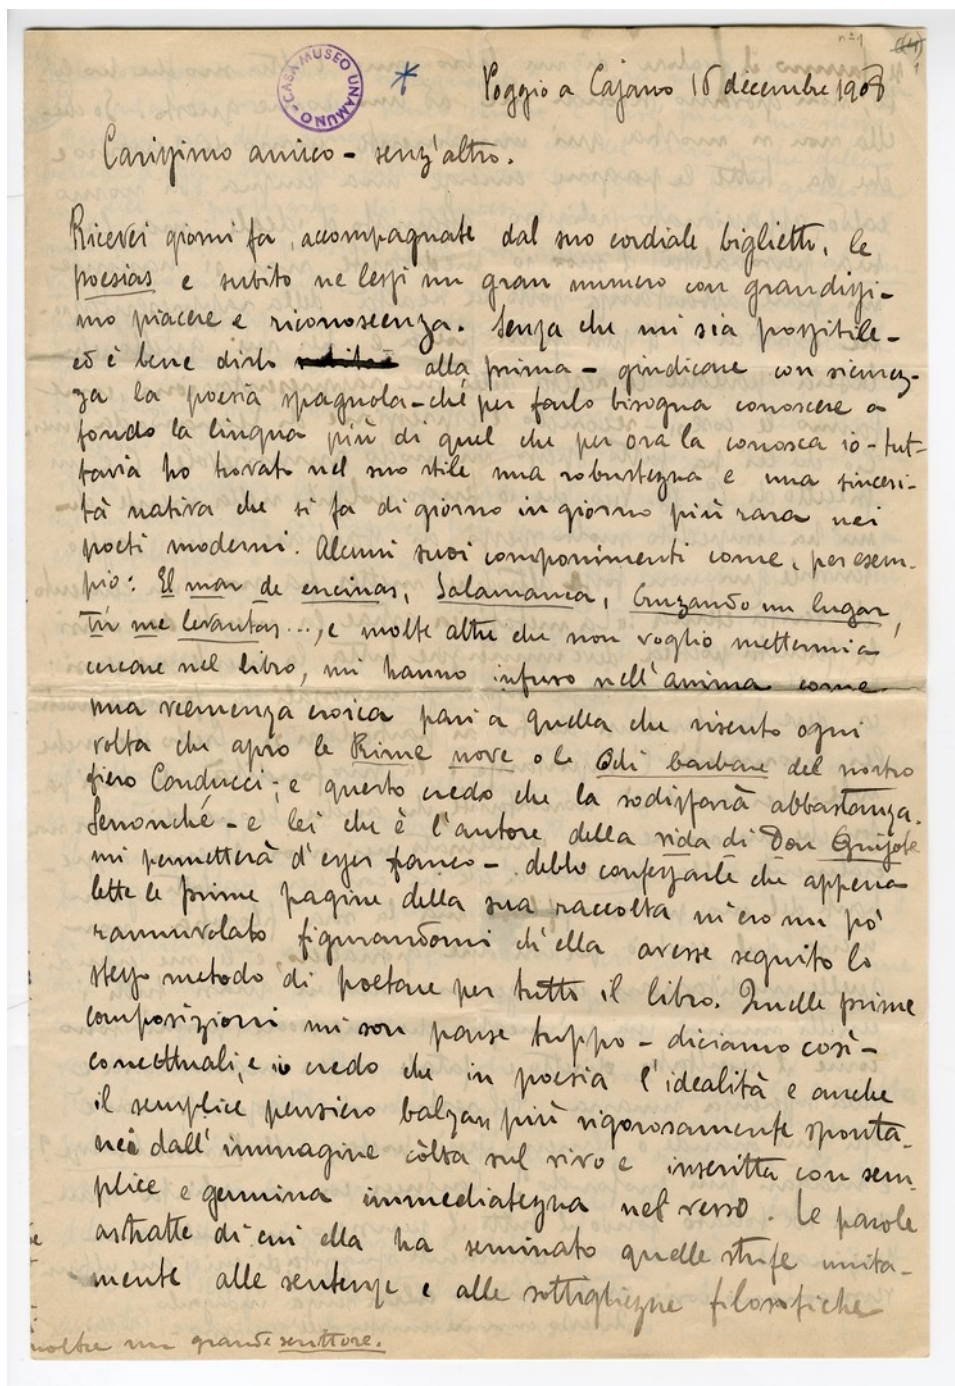 nº 1
CASA MUSEO UNAMUNO
Poggio a Cajano 16 decembre 1908
Carissimo amico - senz'altro.
Ricevei giorni fa, accompagnate dal suo cordiale biglietto, le
poesias e subito ne lessi un gran numero con grandissi-
mo piacere e riconoscenza. Senza che mi sia possibile -
ed è bene dirlo alla prima - giudicare con sicurez-
za la poesia spagnola - chè per farlo bisogna conoscere a
fondo la lingua più di quel che per ora la conosca io - tut-
tavia ho trovato nel suo stile una robustezza e una sinceri-
tà nativa che si fa di giorno in giorno più rara nei
poeti moderni. Alcuni suoi componimenti come, per esem-
pio: El mar de encinas, Salamanca, Cruzando un lugar,
Tú me levantas..., e molte altre che non voglio mettermi a
cercare nel libro, mi hanno infuso nell'anima come
una veemenza eroica pari a quella che risento ogni
volta che apro le Rime nove o le Odi barbare del nostro
fiero Carducci; e questo credo che la sodisfarà abbastanza.
Senonché - e lei che è l'autore della vida di Don Quijote
mi permetterà d'esser franco - debbo confessarle che appena
lette le prime pagine della sua raccolta m'ero un pò
rannuvolato figurandomi ch'ella avesse seguito lo
stesso metodo di poetare per tutto il libro. Quelle prime
composizioni mi son parse troppo - diciamo così -
concettuali, e io credo che in poesia l'idealità e anche
il semplice pensiero balzan più rigorosamente sponta-
nei dall'immagine còlta sul vivo e inscritta con sem-
plice e genuina immediatezza nel verso. Le parole
astratte di cui ella ha seminato quelle strofe unita-
mente alle sentenze e alle sottigliezze filosofiche
inoltre un grande scrittore.